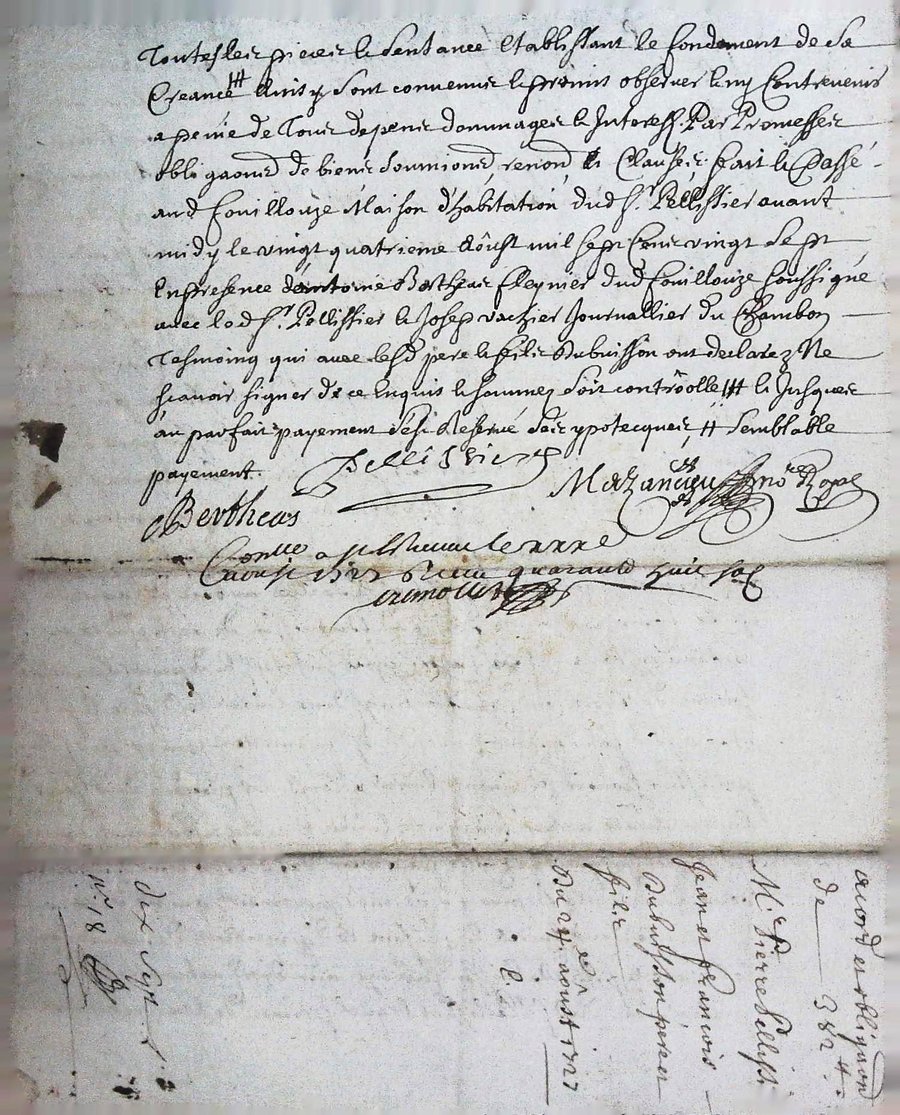 Touttes les pieces & Sentance Etablissant le fondement de Sa
Creance # Ainsy Sont convenus & promis observer & ny Contrevenir
a peine de Tous depens dommages & Interests Par Promesses
obligaons de biens Soumions renond & Clauses; fait & Passé
aud fouillouze Maison d'habitation dud Sr. Pellissier avant
midy le vingt quatrieme Aoust mil Sept Cens vingt Sept
En presence d'antoine Bertheas dud fouillouze Soussigné
avec led Sr. Pellissier & Joseph vachier Journallier du Chambon
Tesmoings qui avec lesd pere & fils Dubuisson ont declarez Ne
sçavoir signer de ce Enquis & Sommez Soit controolle # & Jusques
au parfait payement des ypotecques, # Semblable
payement.
Pellissier
Mazancieu no.re Royal
Bertheas
Conlle a
Aoust 1727 quarante huit sols
acord et obligaon
de 382 ₶
Mr. Pierre Pellissr.
Jean et francois
Dubuisson pere et
fils
Du 24e. aoust 1727
Dix Sept
n.o 18